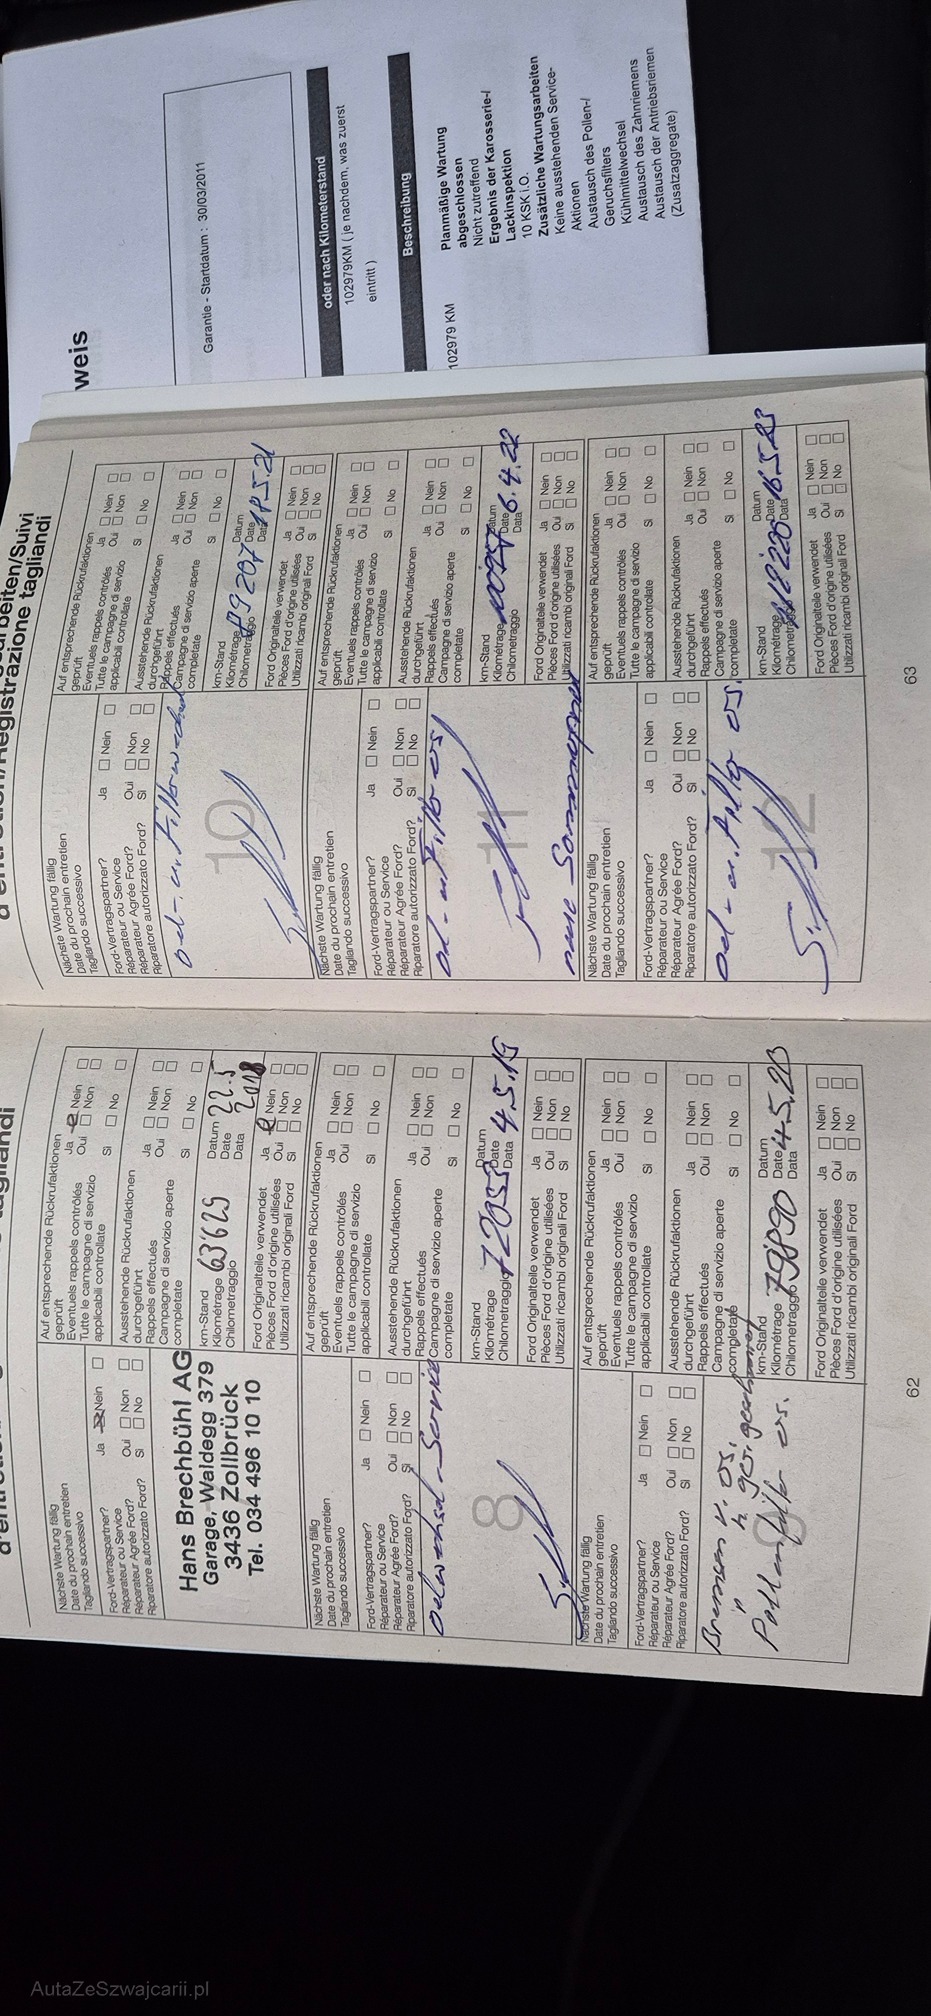 weis
Garantie - Startdatum : 30/03/2011
oder nach Kilometerstand
102979KM ( je nachdem, was zuerst
eintritt )
Beschreibung
102979 KM
Planmäßige Wartung
abgeschlossen
Nicht zutreffend
Ergebnis der Karosserie-/
Lackinspektion
10 KSK i.O.
Zusätzliche Wartungsarbeiten
Keine ausstehenden Service-
Aktionen
Austausch des Pollen-/
Geruchsfilters
Kühlmittelwechsel
Austausch des Zahnriemens
Austausch der Antriebsriemen
(Zusatzaggregate)
Nächste Wartung fällig
Date du prochain entretien
Tagliando successivo
Ford-Vertragspartner?
Réparateur ou Service
Réparateur Agrée Ford?
Riparatore autorizzato Ford?
Ja Nein
Oui Non
Si No
Hans Brechbühl AG
Garage, Waldegg 379
3436 Zollbrück
Tel. 034 496 10 10
Auf entsprechende Rückrufaktionen
geprüft
Eventuels rappels contrôlés
Tutte le campagne di servizio
applicabili controllate
Ja Nein
Oui Non
Si No
Ausstehende Rückrufaktionen
durchgeführt
Rappels effectués
Campagne di servizio aperte
completate
Ja Nein
Oui Non
Si No
km-Stand
Kilométrage 63'629
Chilometraggio
Datum 22.5
Date 2018
Data
Ford Originalteile verwendet
Pièces Ford d'origine utilisées
Utilizzati ricambi originali Ford
Ja Nein
Oui Non
Si No
Nächste Wartung fällig
Date du prochain entretien
Tagliando successivo
Ford-Vertragspartner?
Réparateur ou Service
Réparateur Agrée Ford?
Riparatore autorizzato Ford?
Ja Nein
Oui Non
Si No
Oelwechsel-Service
8
Auf entsprechende Rückrufaktionen
geprüft
Eventuels rappels contrôlés
Tutte le campagne di servizio
applicabili controllate
Ja Nein
Oui Non
Si No
Ausstehende Rückrufaktionen
durchgeführt
Rappels effectués
Campagne di servizio aperte
completate
Ja Nein
Oui Non
Si No
km-Stand
Kilométrage
Chilometraggio
Datum
Date 4.5.19
Data
Ford Originalteile verwendet
Pièces Ford d'origine utilisées
Utilizzati ricambi originali Ford
Ja Nein
Oui Non
Si No
Nächste Wartung fällig
Date du prochain entretien
Tagliando successivo
Ford-Vertragspartner?
Réparateur ou Service
Réparateur Agrée Ford?
Riparatore autorizzato Ford?
Ja Nein
Oui Non
Si No
Bremsen v. ers.
" h. ger.
Pollenfilter ers.
Auf entsprechende Rückrufaktionen
geprüft
Eventuels rappels contrôlés
Tutte le campagne di servizio
applicabili controllate
Ja Nein
Oui Non
Si No
Ausstehende Rückrufaktionen
durchgeführt
Rappels effectués
Campagne di servizio aperte
completate
Ja Nein
Oui Non
Si No
km-Stand
Kilométrage 79890
Chilometraggio
Datum
Date 4.5.20
Data
Ford Originalteile verwendet
Pièces Ford d'origine utilisées
Utilizzati ricambi originali Ford
Ja Nein
Oui Non
Si No
62
Nächste Wartung fällig
Date du prochain entretien
Tagliando successivo
Ford-Vertragspartner?
Réparateur ou Service
Réparateur Agrée Ford?
Riparatore autorizzato Ford?
Ja Nein
Oui Non
Si No
Oel- u. Filterwechsel
10
Auf entsprechende Rückrufaktionen
geprüft
Eventuels rappels contrôlés
Tutte le campagne di servizio
applicabili controllate
Ja Nein
Oui Non
Si No
Ausstehende Rückrufaktionen
durchgeführt
Rappels effectués
Campagne di servizio aperte
completate
Ja Nein
Oui Non
Si No
km-Stand
Kilométrage 89207
Chilometraggio
Datum
Date
Data
Ford Originalteile verwendet
Pièces Ford d'origine utilisées
Utilizzati ricambi originali Ford
Ja Nein
Oui Non
Si No
Nächste Wartung fällig
Date du prochain entretien
Tagliando successivo
Ford-Vertragspartner?
Réparateur ou Service
Réparateur Agrée Ford?
Riparatore autorizzato Ford?
Ja Nein
Oui Non
Si No
Oel- u. Filter ers
11
neue
Auf entsprechende Rückrufaktionen
geprüft
Eventuels rappels contrôlés
Tutte le campagne di servizio
applicabili controllate
Ja Nein
Oui Non
Si No
Ausstehende Rückrufaktionen
durchgeführt
Rappels effectués
Campagne di servizio aperte
completate
Ja Nein
Oui Non
Si No
km-Stand
Kilométrage
Chilometraggio
Datum
Date 6.4.22
Data
Ford Originalteile verwendet
Pièces Ford d'origine utilisées
Utilizzati ricambi originali Ford
Ja Nein
Oui Non
Si No
Nächste Wartung fällig
Date du prochain entretien
Tagliando successivo
Ford-Vertragspartner?
Réparateur ou Service
Réparateur Agrée Ford?
Riparatore autorizzato Ford?
Ja Nein
Oui Non
Si No
Oel- u. Filter ers.
12
Auf entsprechende Rückrufaktionen
geprüft
Eventuels rappels contrôlés
Tutte le campagne di servizio
applicabili controllate
Ja Nein
Oui Non
Si No
Ausstehende Rückrufaktionen
durchgeführt
Rappels effectués
Campagne di servizio aperte
completate
Ja Nein
Oui Non
Si No
km-Stand
Kilométrage
Chilometraggio
Datum
Date 16.5.23
Data
Ford Originalteile verwendet
Pièces Ford d'origine utilisées
Utilizzati ricambi originali Ford
Ja Nein
Oui Non
Si No
63
AutaZeSzwajcarii.pl